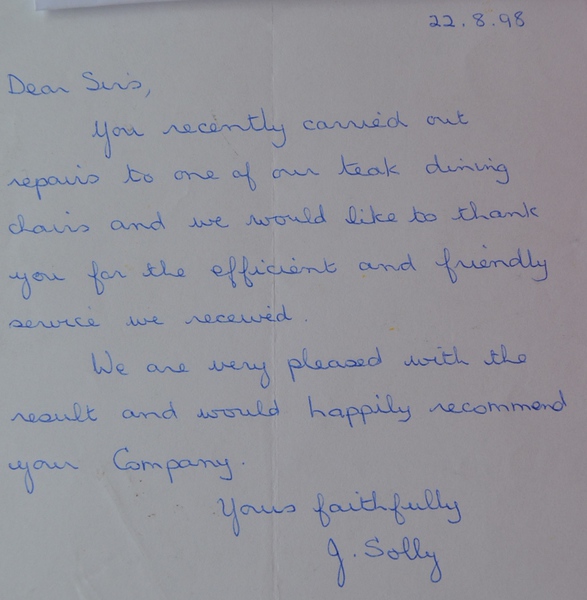 22.8.98
Dear Sirs,
You recently carried out
repairs to one of our teak dining
chairs and we would like to thank
you for the efficient and friendly
service we received.
We are very pleased with the
result and would happily recommend
your Company.
Yours faithfully
J. Solly